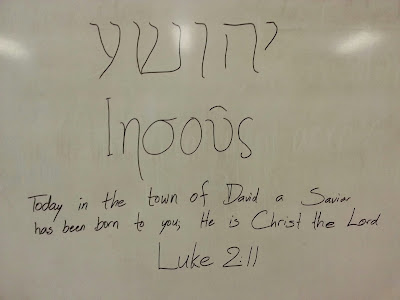 יהושע
Ἰησοῦς
Today in the town of David a Savior
has been born to you; He is Christ the Lord
Luke 2:11